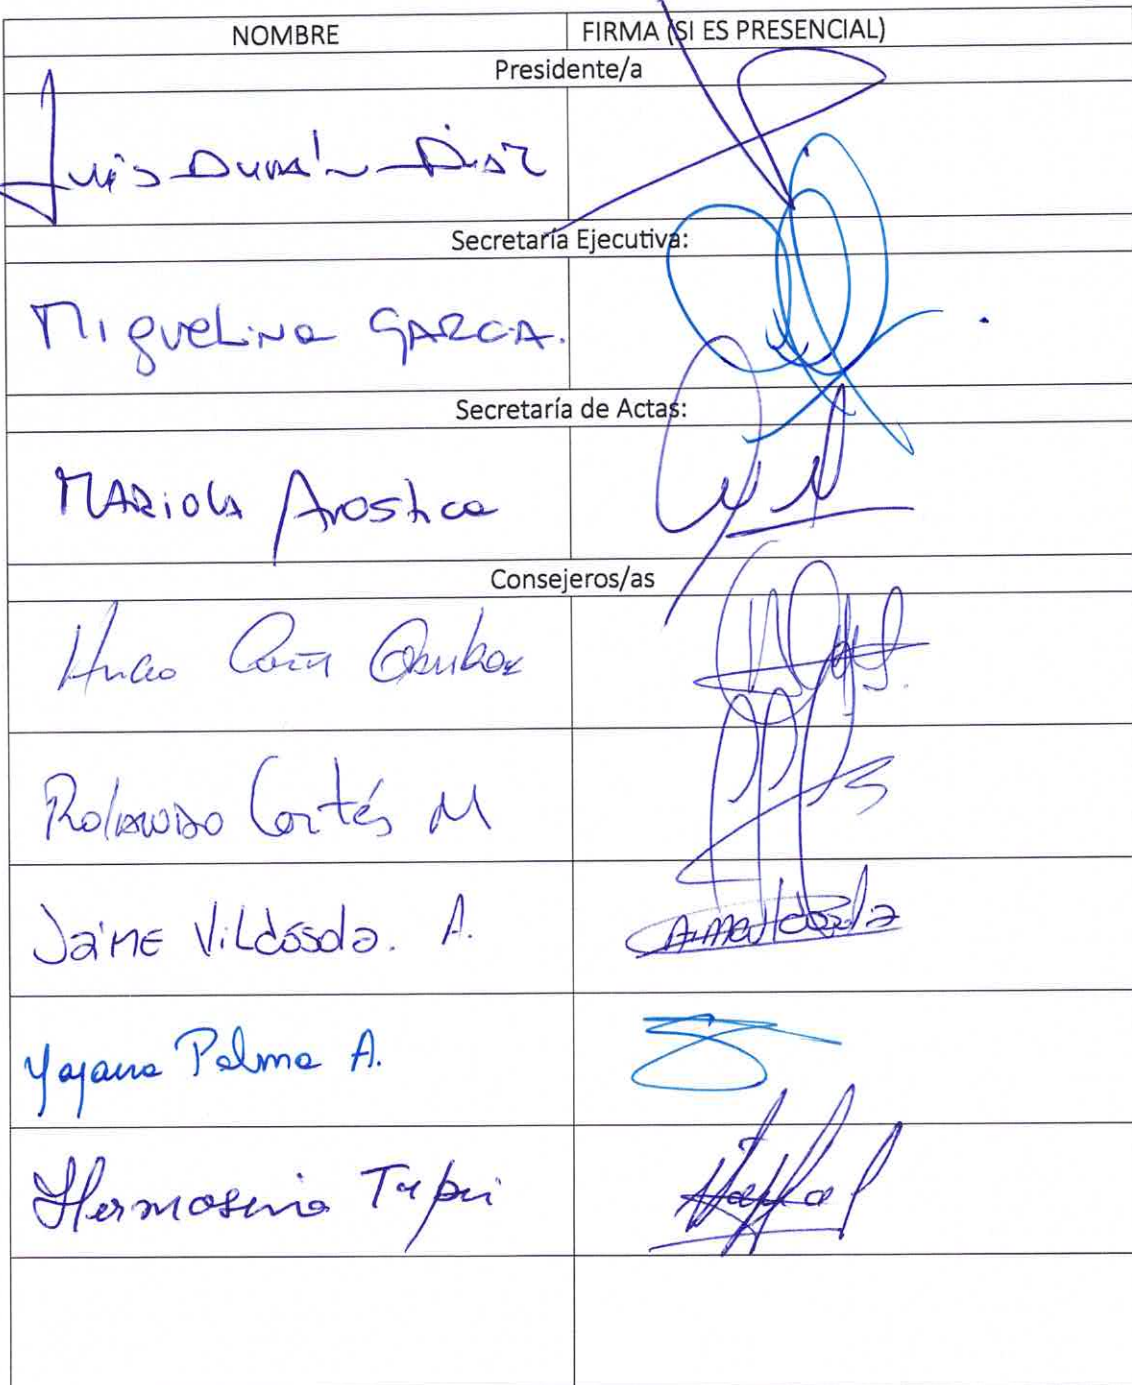 NOMBRE FIRMA (SI ES PRESENCIAL)
Presidente/a
Luis Durán Díaz
Secretaría Ejecutiva:
Miguelina GARCIA.
Secretaría de Actas:
MARIOLA Arostica
Consejeros/as
Hugo
Rolando Cortés M
Jaime Vildósola. A.
Yajaira Palma A.
Hermosina Tapia